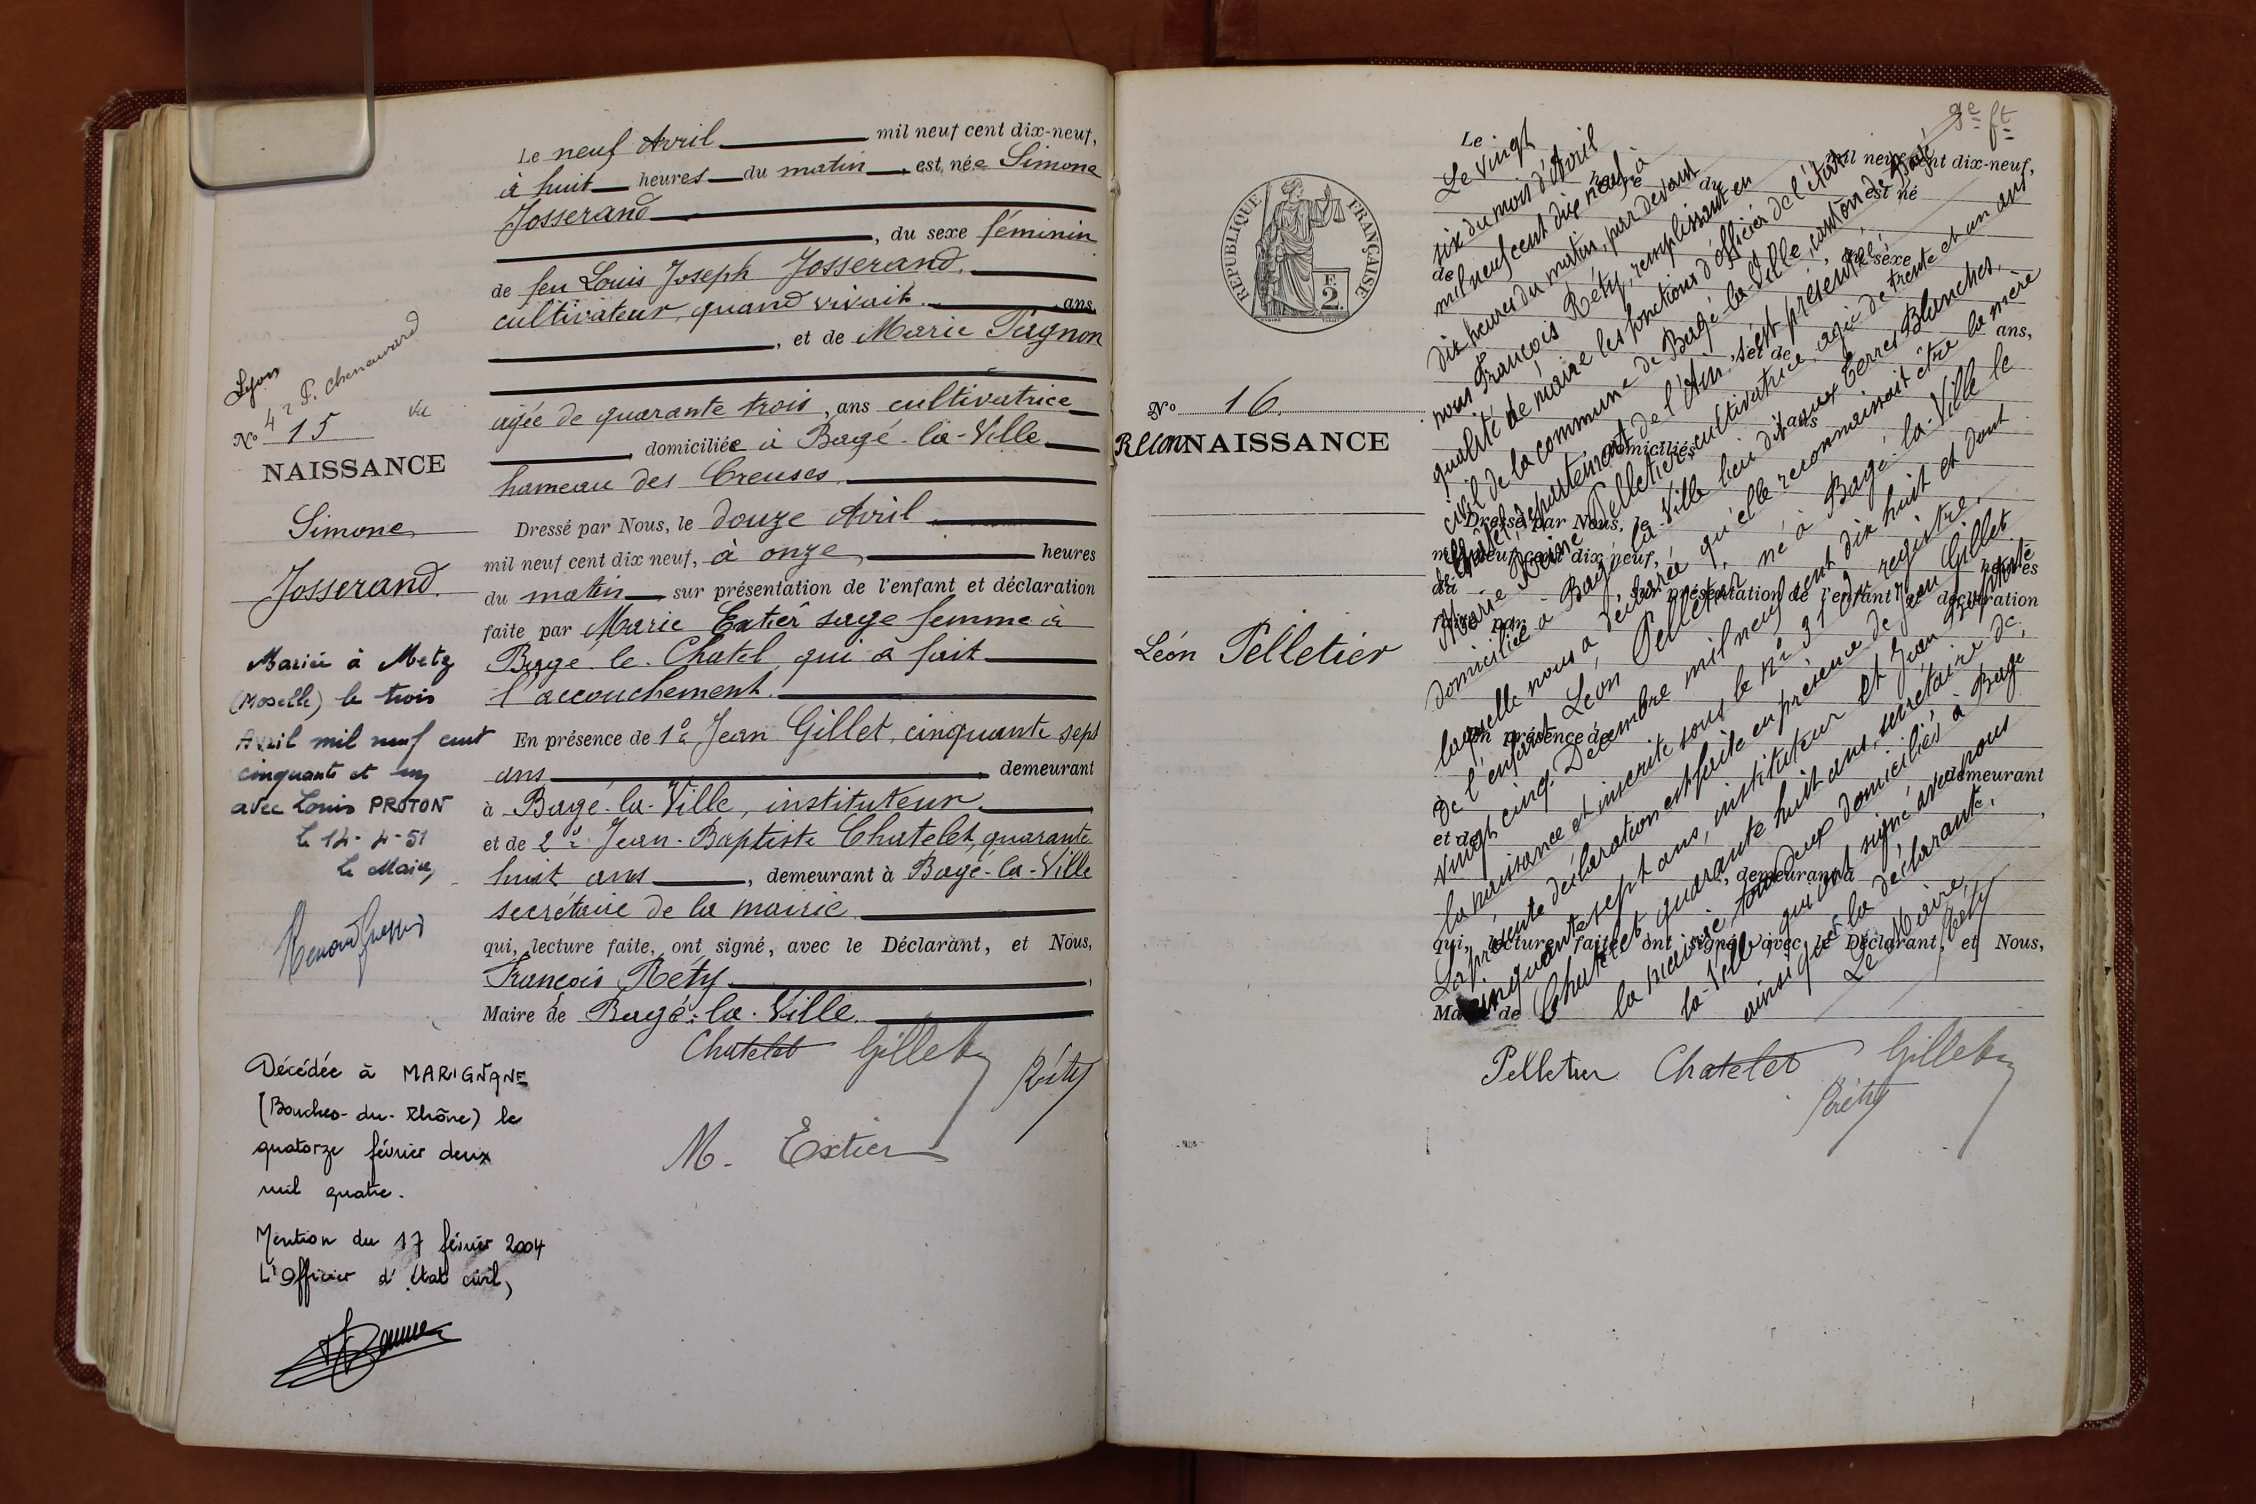 Le neuf Avril mil neuf cent dix-neuf,
à huit heures du matin, est née Simone
Josserand
, du sexe féminin
de feu Louis Joseph Josserand,
cultivateur, quand vivait. ans,
, et de Marie Pagnon
agée de quarante trois, ans cultivatrice
, domiciliée à Bagé-la-Ville
hameau des Creuses.
Dressé par Nous, le douze Avril
mil neuf cent dix neuf, à onze heures
du matin sur présentation de l'enfant et déclaration
faite par Marie Extier sage femme à
Bagé-le-Chatel, qui a fait
l'accouchement.
En présence de 1° Jean Gillet, cinquante sept
ans demeurant
à Bagé-la-Ville, instituteur
et de 2° Jean-Baptiste Chatelet, quarante
huit ans, demeurant à Bagé-la-Ville
secrétaire de la mairie
qui, lecture faite, ont signé, avec le Déclarant, et Nous,
François Réty,
Maire de Bagé-la-Ville.
Chatelet Gillet Réty
M. Extier
Lyon
4 r P. Chenavard
N° 15 vu
NAISSANCE
Simone
Josserand.
Mariée à Metz
(Moselle) le trois
Avril mil neuf cent
cinquante et un
avec Louis PROTON
le 14-4-51
le Maire,
Décédée à MARIGNANE
(Bouches-du-Rhône) le
quatorze février deux
mil quatre.
Mention du 17 février 2004
L'Officier d'état civil,
RÉPUBLIQUE FRANÇAISE
F.
2
N° 16.
RECONNAISSANCE
Léon Pelletier
ge ft
Le vingt
six du mois d'Avril
mil neuf cent dix neuf à
dix heures du matin, par devant
nous François Réty, remplissant en
qualité de maire les fonctions d'officier de l'état
civil de la commune de Bagé-la-Ville, canton de Bagé
le Châtel, département de l'Ain, s'est présentée,
Marie Reine Pelletier, cultivatrice, agée de trente et un ans
domiciliée à Bagé-la-Ville lieu dit aux Terres Blanches,
laquelle nous a déclaré qu'elle reconnaissait être la mère
de l'enfant Léon Pelletier, né à Bagé-la-Ville le
vingt cinq Décembre mil neuf cent dix huit et dont
la naissance est inscrite sous le n° 31 du registre.
La présente déclaration est faite en présence de Jean Gillet
cinquante sept ans, instituteur et Jean Baptiste
Chatelet quarante huit ans, secrétaire de
la mairie, tous deux domiciliés à Bagé
la-Ville, qui ont signé avec nous
ainsi que la déclarante.
Le Maire,
Réty
Le
mil neuf cent dix-neuf,
heure du
est né
du sexe
de
et de
ans,
domiciliés
Dressé par Nous, le
mil neuf cent dix neuf,
heures
du
sur présentation de l'enfant et déclaration
faite par
En présence de
demeurant
et de
, demeurant à
qui, lecture faite, ont signé, avec le Déclarant, et Nous,
Maire de
Pelletier Chatelet Gillet
Réty